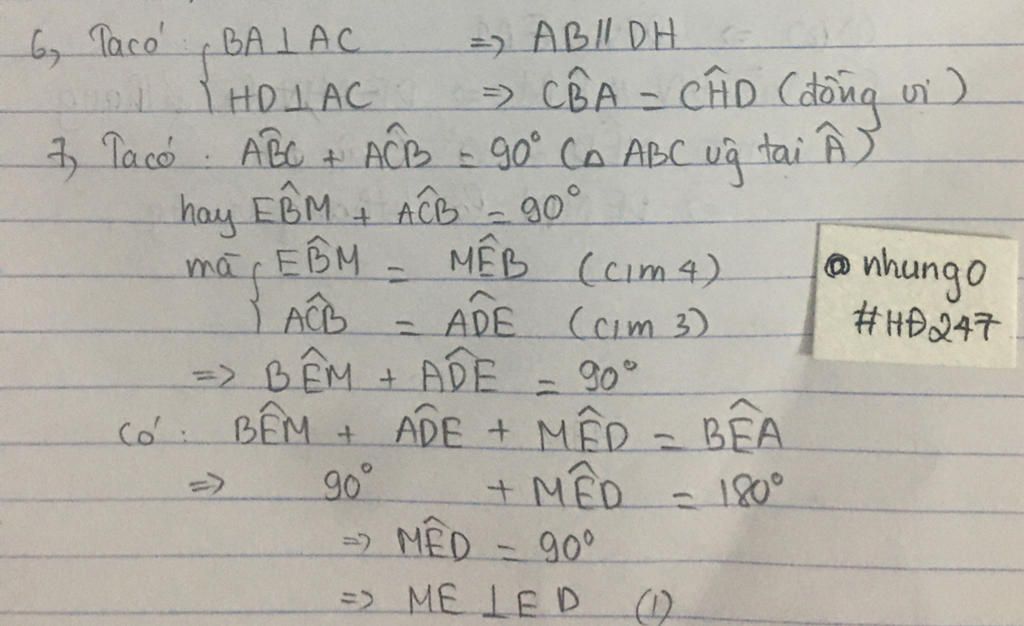 6, Ta có : { BA ⊥ AC => AB // DH
HD ⊥ AC => CB̂A = CĤD (đồng vị)
7, Ta có : AB̂C + AĈB = 90° (△ ABC vg tại Â)
hay EB̂M + AĈB = 90°
mà { EB̂M = MÊB (cm 4)
AĈB = AD̂E (cm 3)
=> BÊM + AD̂E = 90°
Có : BÊM + AD̂E + MÊD = BÊA
=> 90° + MÊD = 180°
=> MÊD = 90°
=> ME ⊥ ED (1)
@nhung0
#HĐ247